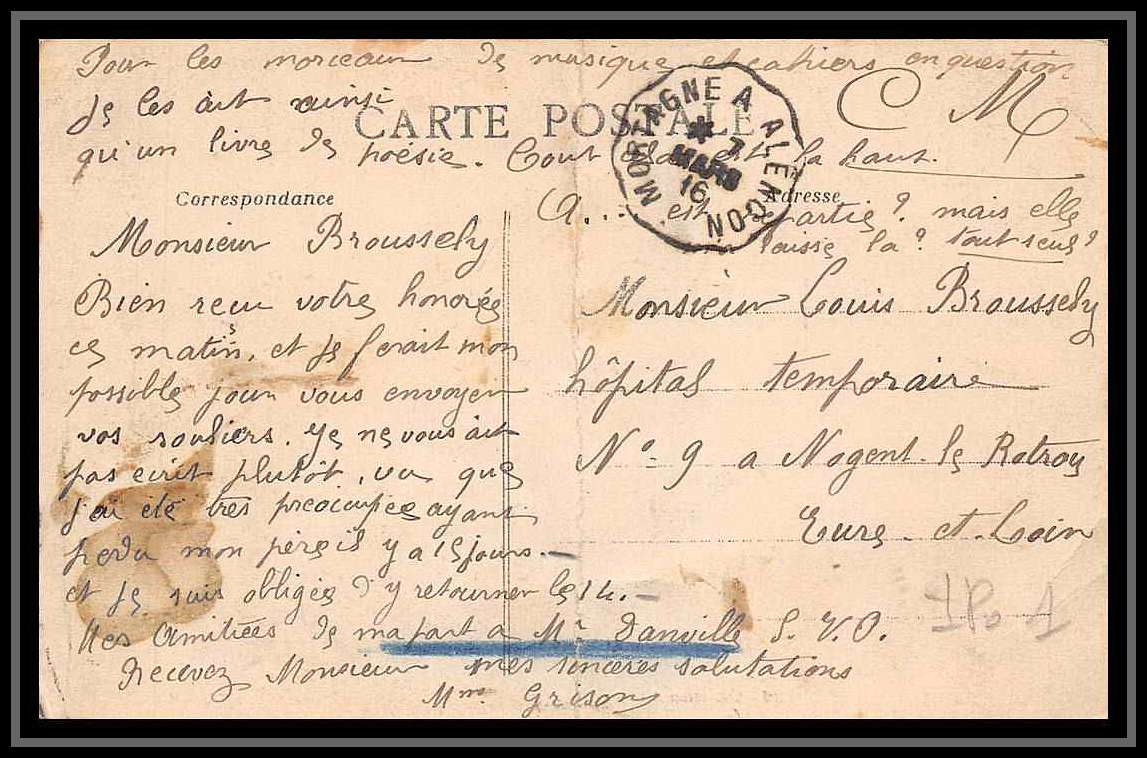 Pour les morceaux de musique et cahiers en question
je les ait ainsi
CARTE POSTALE
qu'un livre de poésie. Tout cela est la haut.
C M
MORTAGNE A ALENÇON
7
MARS
16
Correspondance
Adresse
A... est partie? mais elle
laisse la? tout seul?
Monsieur Broussely
Bien recu votre honorée
ces matin, et je ferait mon
possible pour vous envoyer
vos souliers. Je ne vous ait
pas ecrit plutôt, vu que
j'ai été très préoccupée ayant
perdu mon père il y a 15 jours. —
et je suis obligée d'y retourner le 14. —
Mes amitiées de ma part a Mr Danville S. V. P.
Recevez Monsieur mes sincères salutations
Mme Grison
Monsieur Louis Broussely
hôpital temporaire
No 9 a Nogent-le Rotrou
Eure-et-Loir